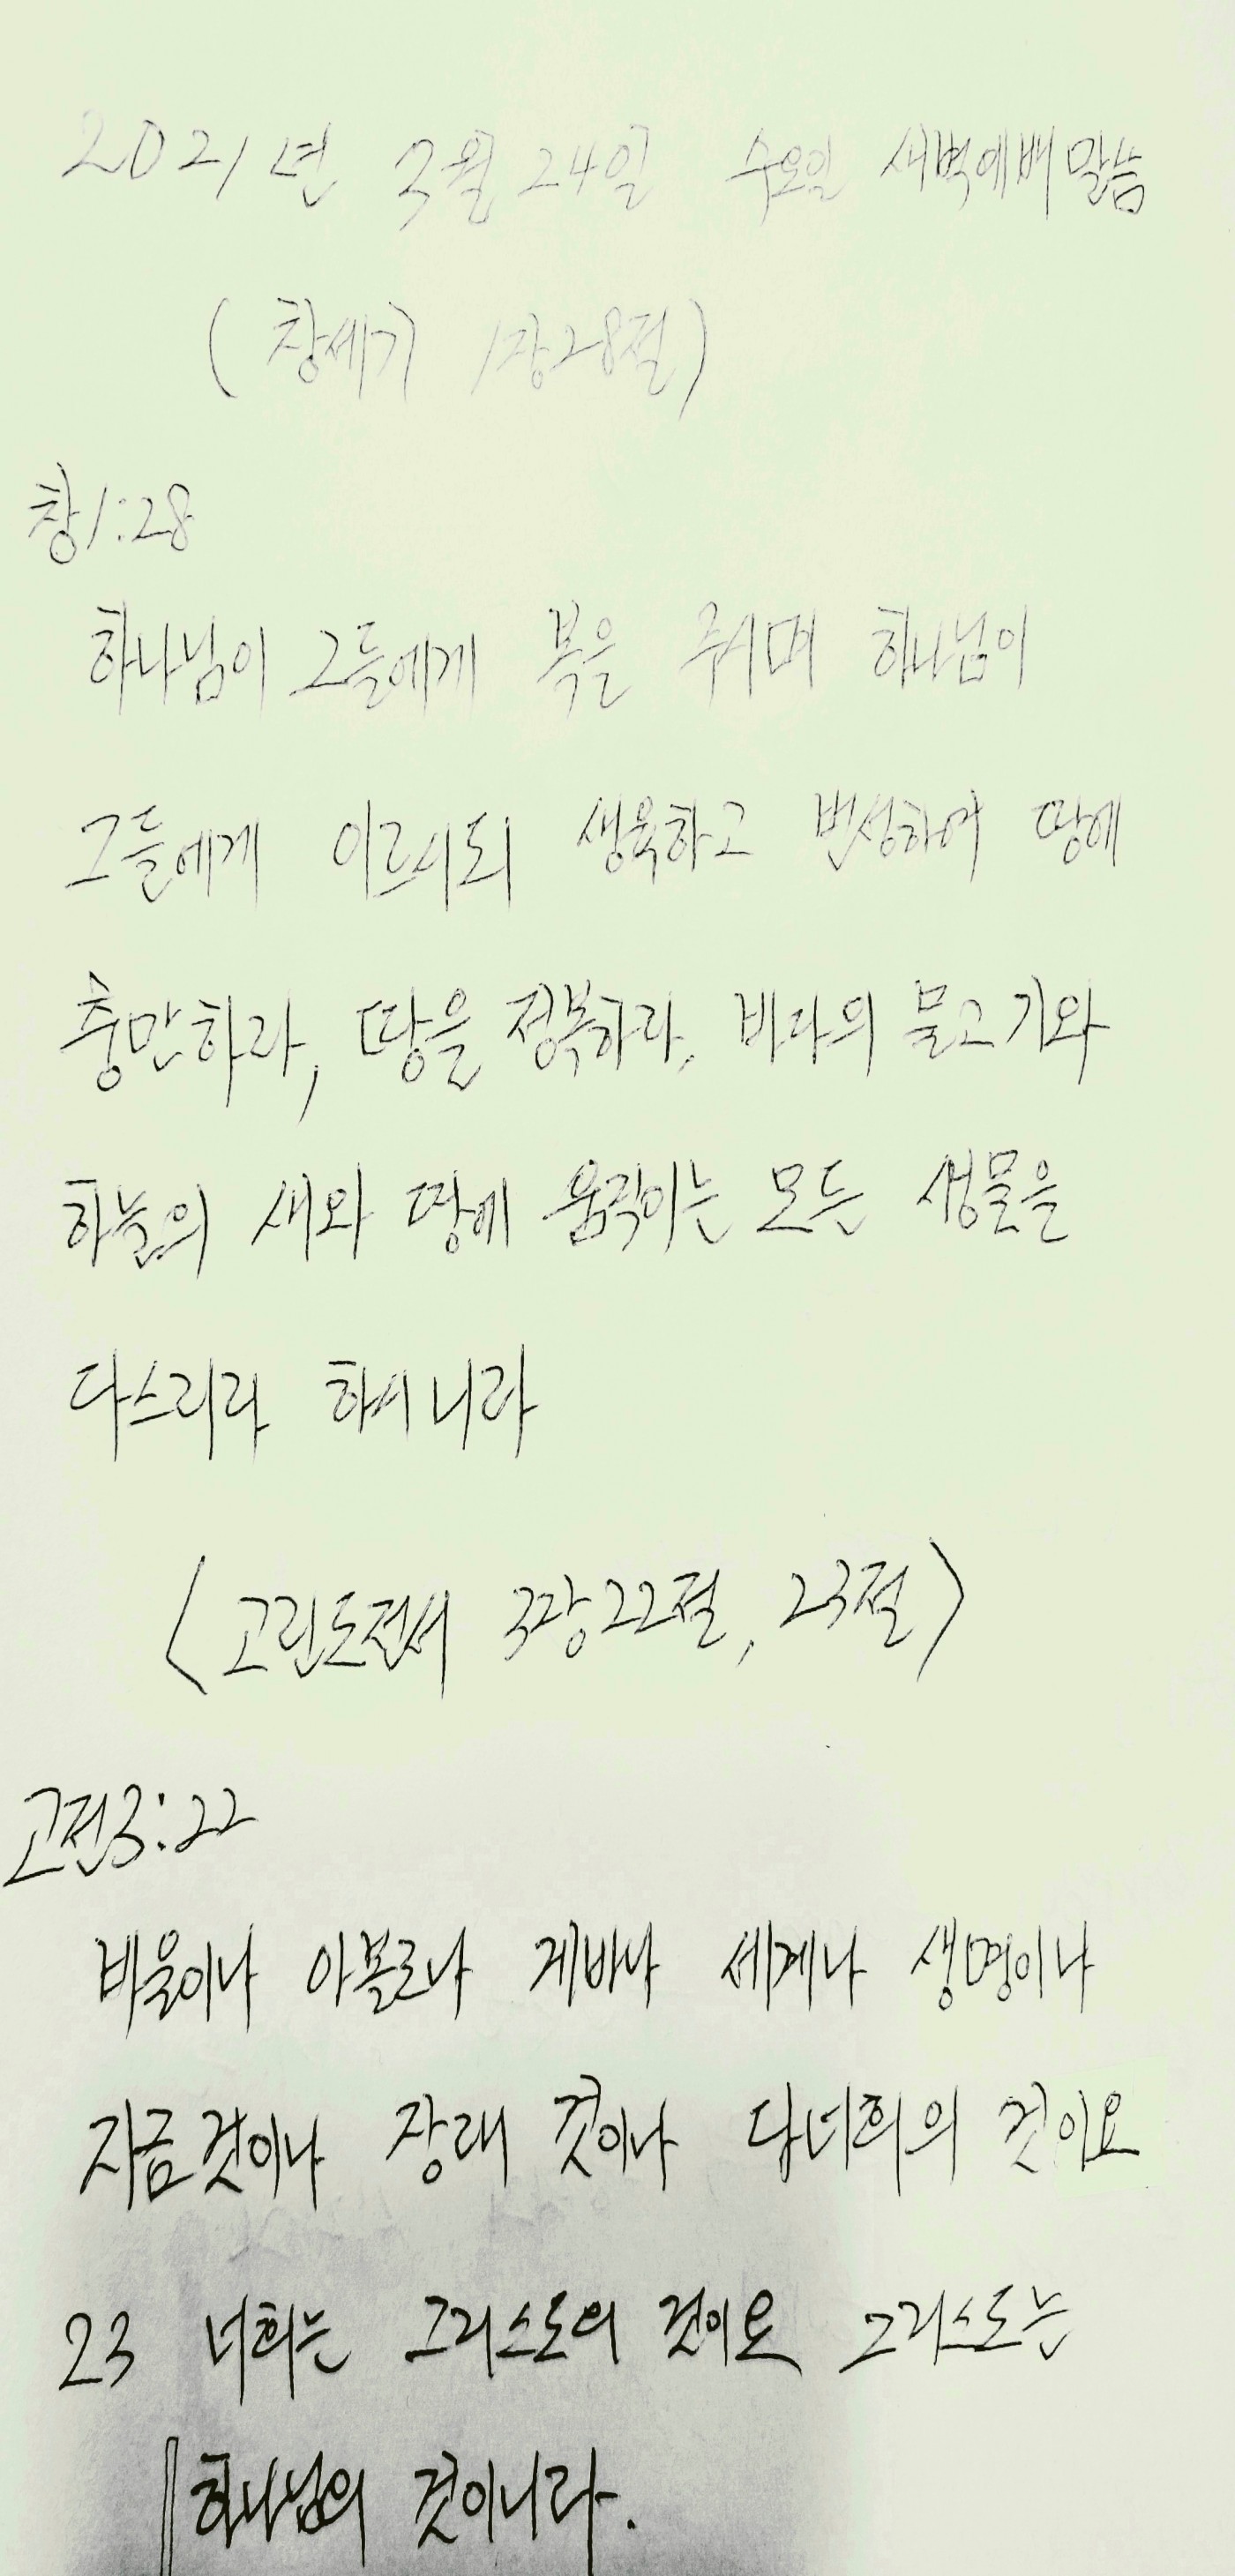 2021년 3월 24일 수요일 새벽예배말씀
( 창세기 1장28절)
창1:28
하나님이 그들에게 복을 주시며 하나님이
그들에게 이르시되 생육하고 번성하여 땅에
충만하라, 땅을 정복하라, 바다의 물고기와
하늘의 새와 땅에 움직이는 모든 생물을
다스리라 하시니라
〈고린도전서 3장22절, 23절〉
고전3:22
바울이나 아볼로나 게바나 세계나 생명이나
지금것이나 장래 것이나 다너희의 것이요
23 너희는 그리스도의 것이요 그리스도는
하나님의 것이니라.